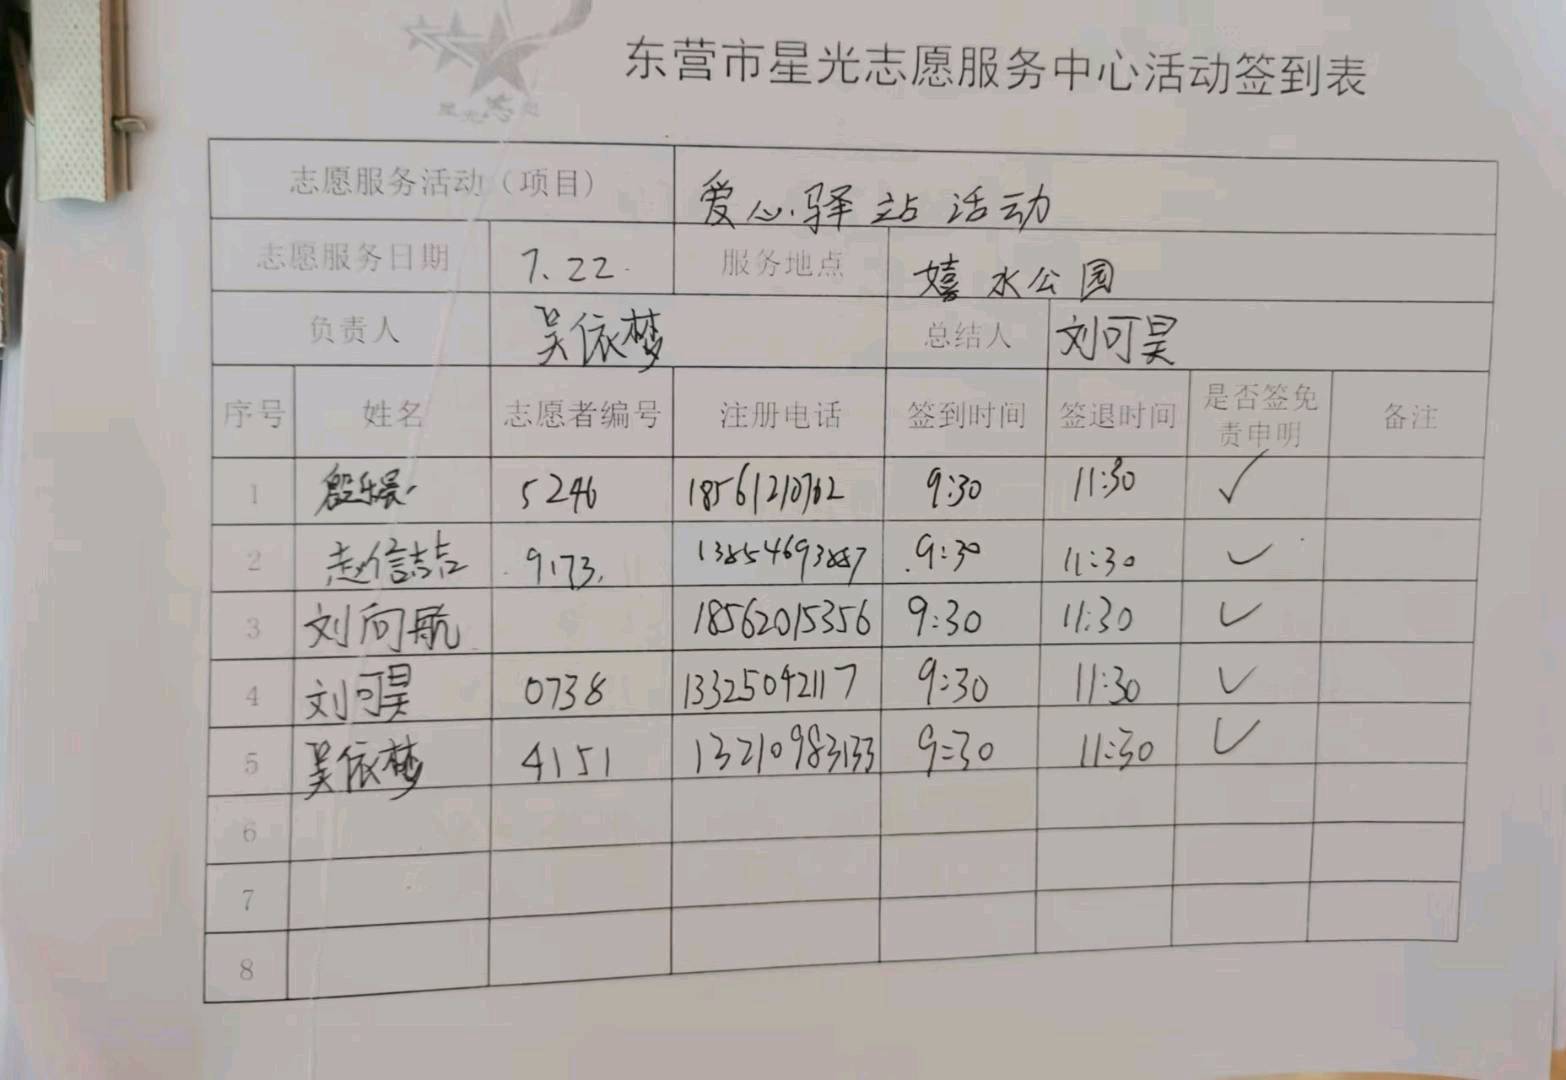 东营市星光志愿服务中心活动签到表
志愿服务活动（项目） 爱心驿站活动
志愿服务日期 7.22 服务地点 嬉水公园
负责人 吴依梦 总结人 刘可昊
序号 姓名 志愿者编号 注册电话 签到时间 签退时间 是否签免责申明 备注
1 5246 18561210762 9:30 11:30 ✓
2 赵信喆 9173 13854693887 9:30 11:30 ✓
3 刘向航 18562015356 9:30 11:30 ✓
4 刘可昊 0738 13325042117 9:30 11:30 ✓
5 吴依梦 4151 13210983133 9:30 11:30 ✓
6
7
8